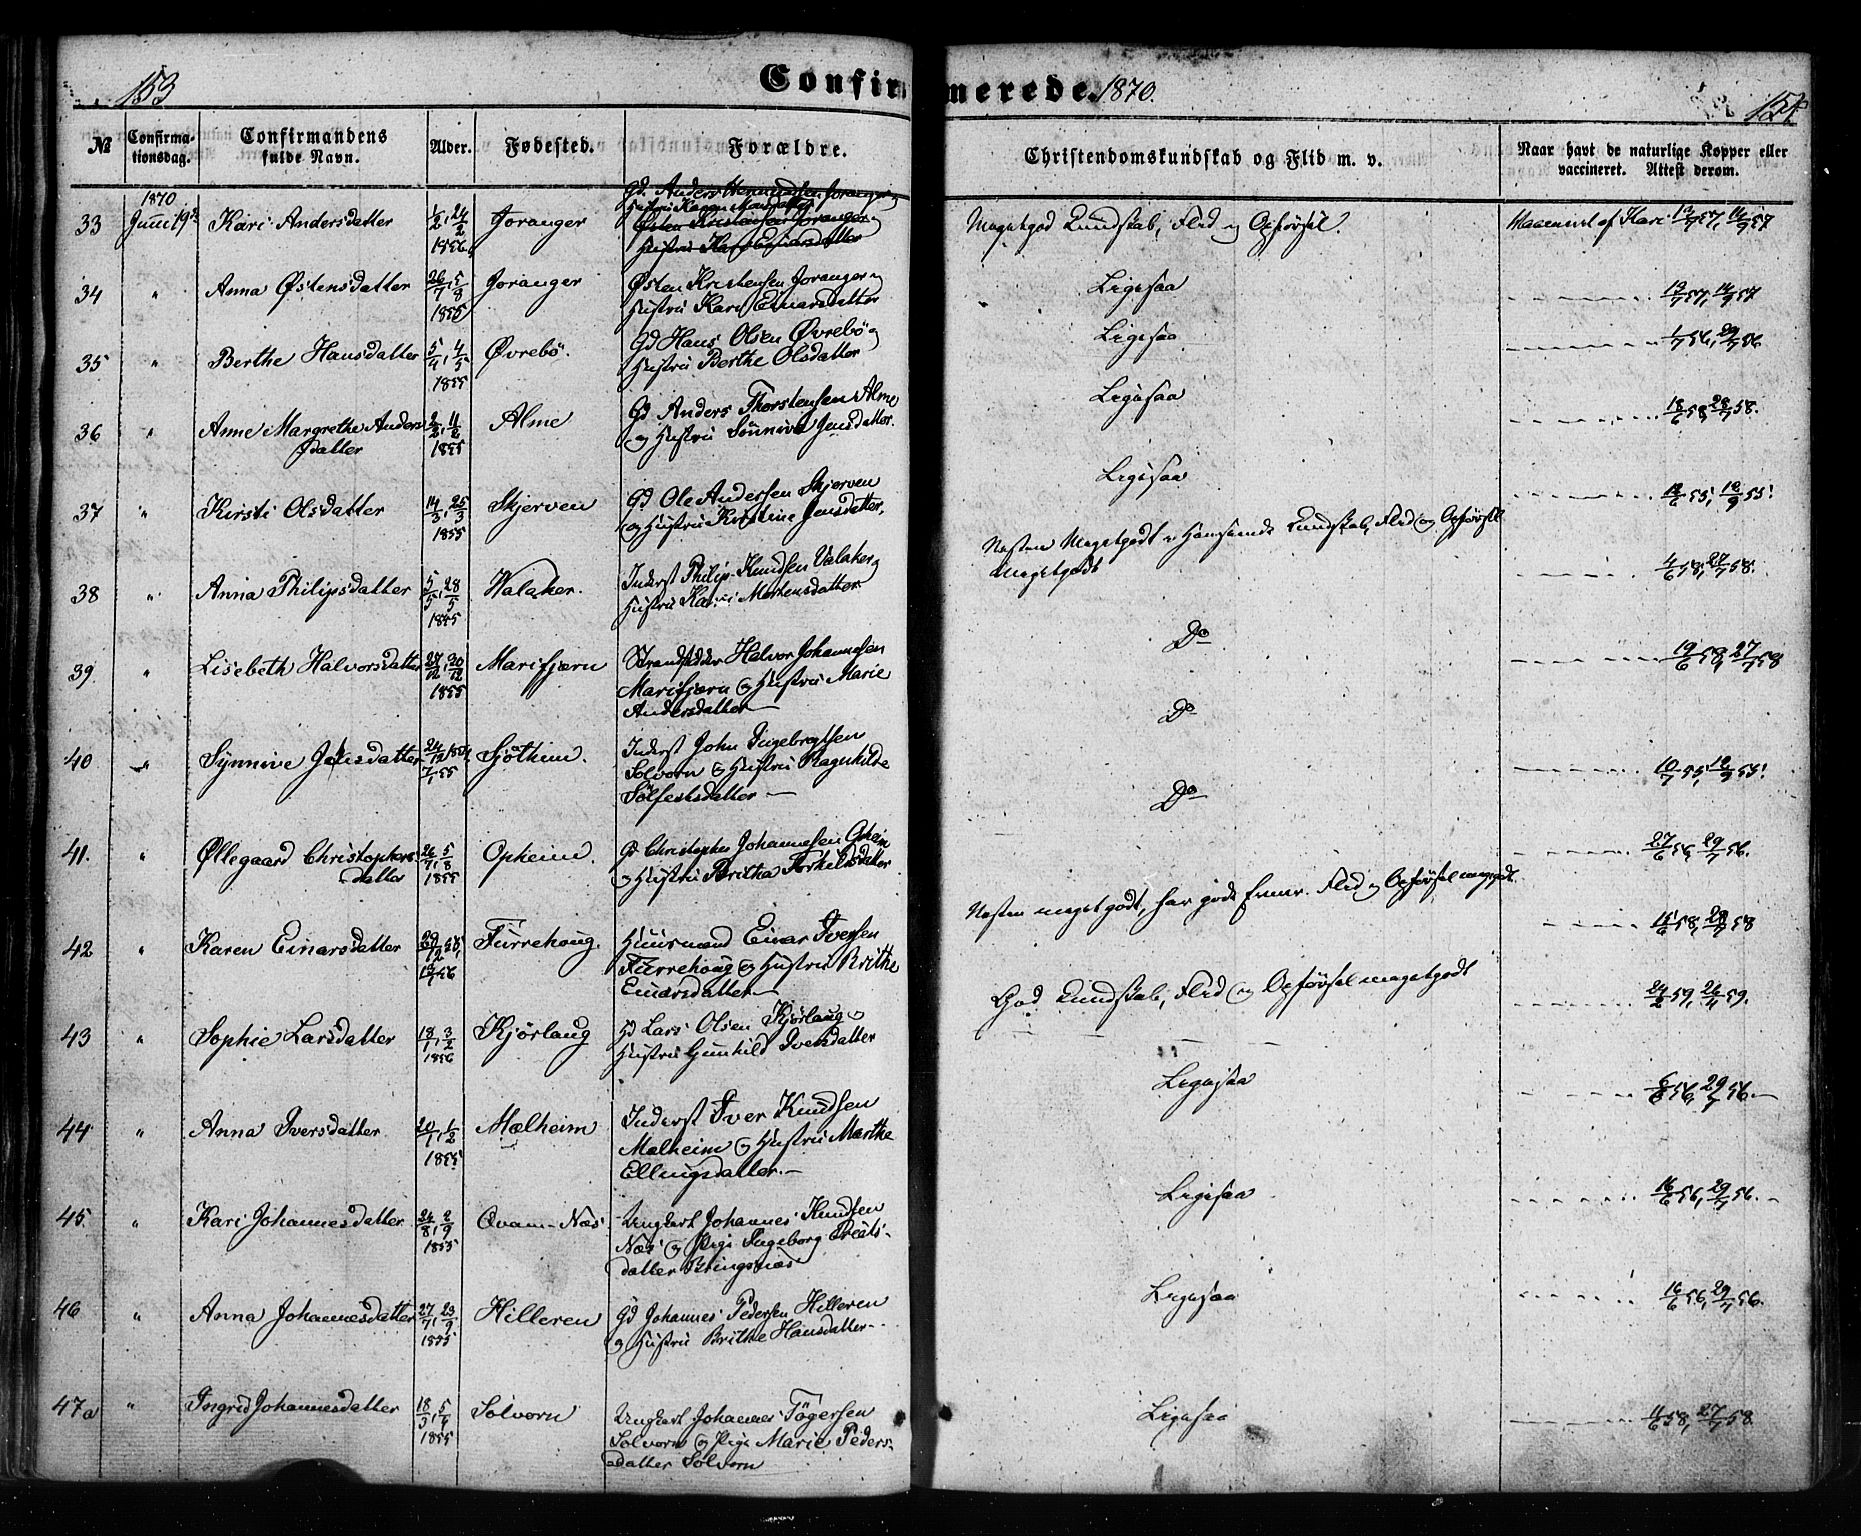 153
Confirmerede. 1870.
154
№
Confirma-
tionsdag.
Confirmandens
fulde Navn.
Alder.
Fødested.
Forældre.
Christendomskundskab og Flid m. v.
Naar havt de naturlige Kopper eller
vaccineret. Attest derom.
1870
33 Juni 19de Kari Andersdatter 24/2 1856 Joranger
Gd. Anders Joranger
Hustru Karen
Østen Kristensen Joranger og
Hustru Kari Einarsdatter
Megetgod Kundskab, Flid og Opførsel.
Vaccineret af 57, 14/9 57
34 " Anna Østensdatter 26/7, 5/8 1855 Joranger
Østen Kristensen Joranger og
Hustru Kari Einarsdatter
Ligesaa
57, 14/9 57
35 " Berthe Hansdatter 5/4, 4/5 1855 Øvrebö.
Gd Hans Olsen Øvrebö og
Hustru Berthe Olsdatter
Ligesaa
1/7 56, 29/7 56
36 " Anne Margrethe Anders
datter 2/2, 11/2 1855 Alme
Gd Anders Thorstensen Alme
og Hustru Sönniva Jensdatter.
Ligesaa
18/6 58, 28/7 58.
37 " Kirsti Olsdatter 14/3, 25/3 1855 Skjerven
Gd Ole Andersen Skjerven
og Hustru Kristine Jensdatter.
Ligesaa
55, 55.
38 " Anna Philipsdatter 5/5, 28/5 1855 Walaker.
Inderst Philip Knudsen Valaker og
Hustru Kari Mortensdatter
Næsten Megetgodt Kundskab, Flid og Opførsel
Megetgodt
4/6 58, 27/7 58.
39 " Lisebeth Halvorsdatter 1855 Marifjærn
Strandsidder Halvor Johannesen
Marifjærn og Hustru Marie
Andersdatter
Do
19/6 58, 27/7 58
40 " Synnive Johnsdatter 24/12 1854, 7/1 55 Sjötheim.
Inderst John Ingebregtsen
Solvorn og Hustru Ragnhilde
Sölfestsdatter
Do
10/7 55, 55.
41. " Øllegaard Christophers-
datter 26/7, 5/8 1855 Opheim.
Gd Christopher Johannesen Opheim
og Hustru Britha Torkelsdatter
Do
27/6 56, 29/7 56.
42 " Karen Einarsdatter 29/12 55, 56 Furrehoug.
Huusmand Einar Iversen
Furrehoug og Hustru Brithe
Einarsdatter
Næsten megetgodt, har gode Evner. Flid og Opførsel megetgodt.
58, 58
43 " Sophie Larsdatter 18/1, 3/2 1856 Kjörlaug
Gd Lars Olsen Kjörlaug og
Hustru Gunhild Iversdatter
God Kundskab, Flid og Opførsel megetgodt
24/2 59, 59.
44 " Anna Iversdatter 20/1, 1/2 1855 Mælheim
Inderst Iver Knudsen
Mælheim og Hustru Marthe
Ellingsdatter.
Ligesaa
56, 29/7 56.
45. " Kari Johannesdatter 24/8, 2/9 1855 Qvam-Næs
Ungkarl Johannes Knudsen
Næs og Pige Ingeborg
datter Bringsnæs
Ligesaa
16/6 56, 29/7 56.
46 " Anna Johannesdatter 27/7, 23/9 1855 Hilleren
Gd Johannes Pedersen Hilleren
og Hustru Brithe Hansdatter
Ligesaa
16/6 56, 29/7 56.
47a " Ingrid Johannesdatter 1855 Solvorn
Ungkarl Johannes Tögersen
Solvorn og Pige Marie Peders-
datter Solvorn
Ligesaa
58, 27/7 58